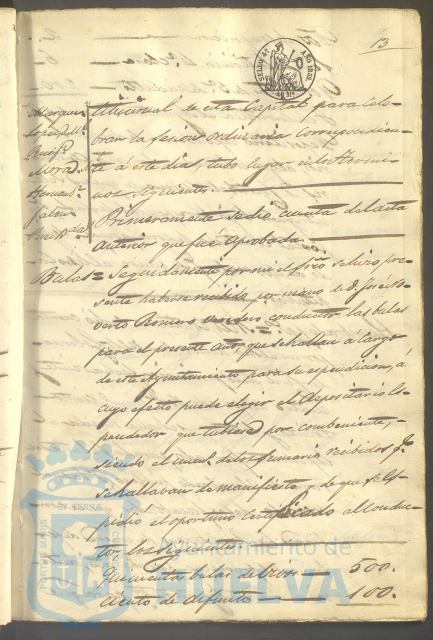 SELLO 4º AÑO 1852
40 Ms
13
titucional de esta Capital para Cele-
brar la sesion Ordinaria correspondien-
te á este dia, tubo lugar en los termi-
nos siguientes.
Primeramente se dió cuenta del acta
anterior que fué aprobada.
Bulas = Seguidamente, por mi el Srio se hizo pre-
sente haberse recibido por mano de D. José
Romero conductor las bulas
para el presente año, que se hallan á Cargo
de este Ayuntamiento para su espendicion, á
cuyo efecto puede elegir el Depositario Es-
pendedor que tubiere por combeniente,
siendo el de los sumarios recibidos q.
se hallaban de manifiesto y de que se Es-
pidió el oportuno Certificado al Conduc-
tor, los siguientes.
Quinientas bulas de vivos 500.
Ciento de difuntos 100.
Ayuntamiento de
HUELVA